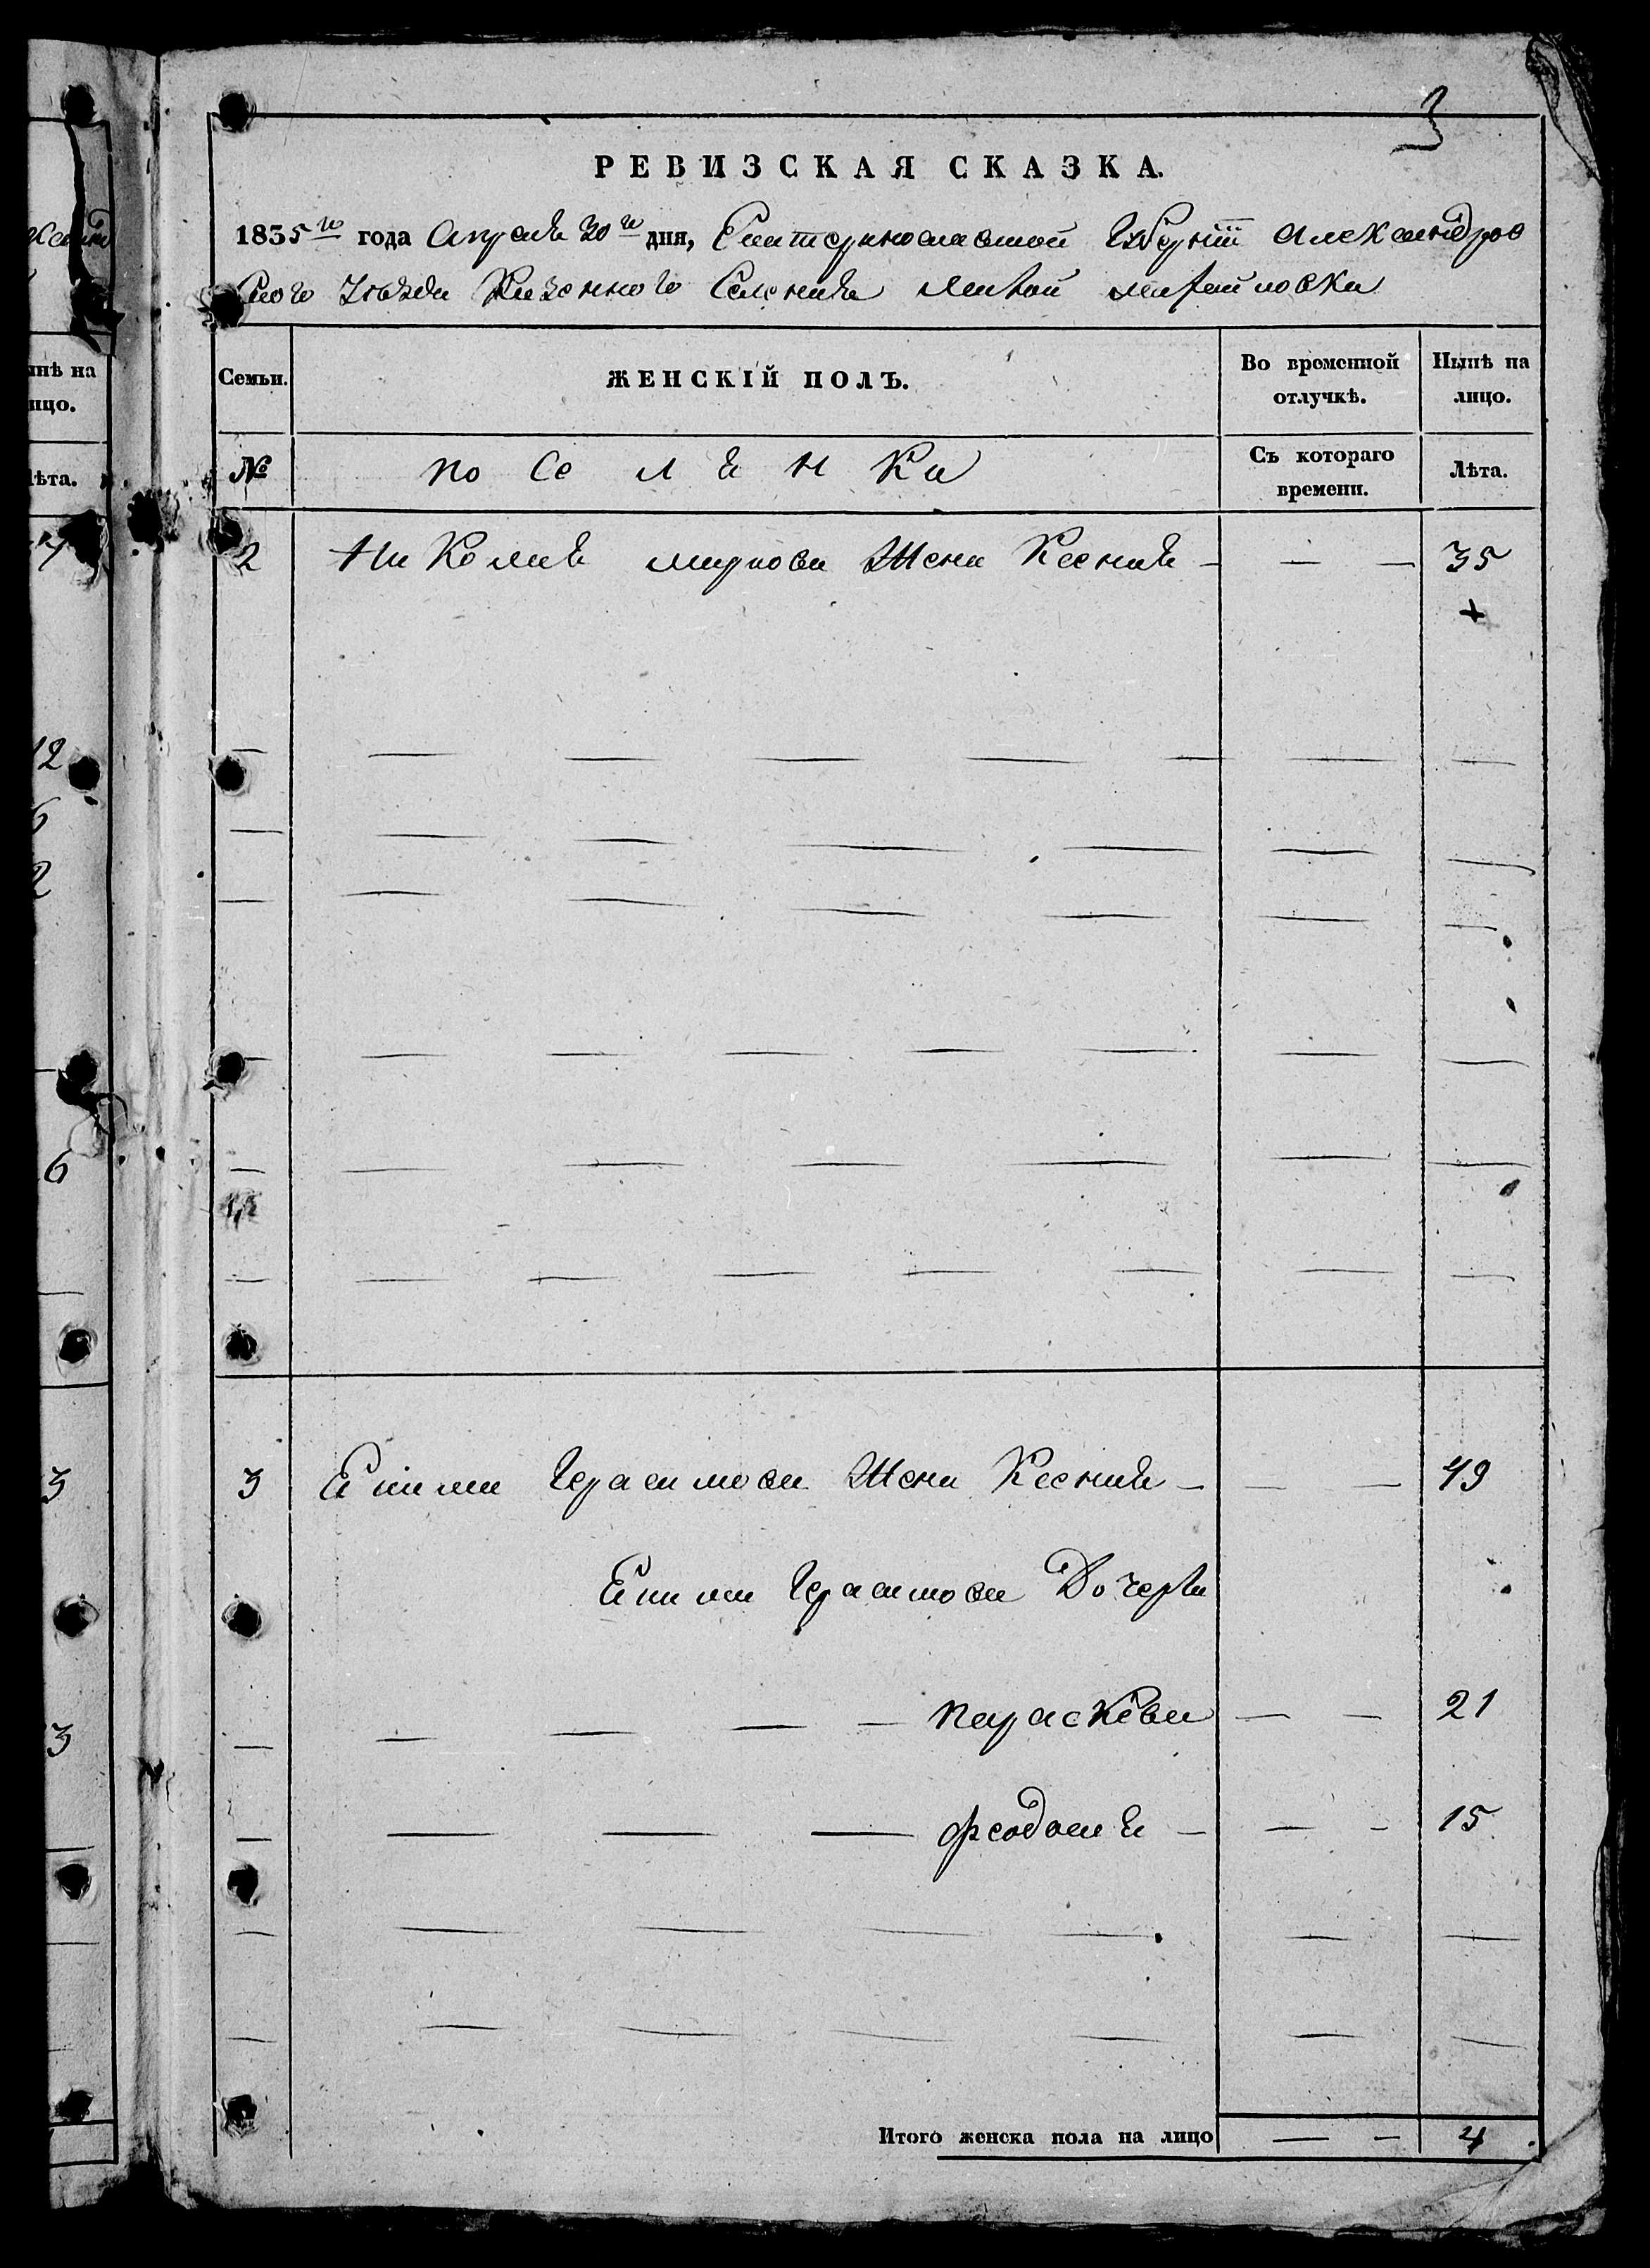 3
РЕВИЗСКАЯ СКАЗКА.
1835го года Апреля 30го дня, Екатеринославской Губернiи Александров
ского Уезда Казенного Селения Малой михайловки
Семьи. ЖЕНСКІЙ ПОЛЪ. Во временной отлучкѣ. Нынѣ на лицо.
№ поселянка Съ котораго времени. Лѣта.
2 Николая миронова Жена Ксения — — — 35
+
3 Екима Герасимова Жена Ксения — — — 49
Екима Герасимова Дочери
— — — — параскева — — 21
— — — феодосия — — - 15
Итого женска пола на лицо — — 4
нѣ на
ицо.
ѣта.
12
6
2
6
3
3